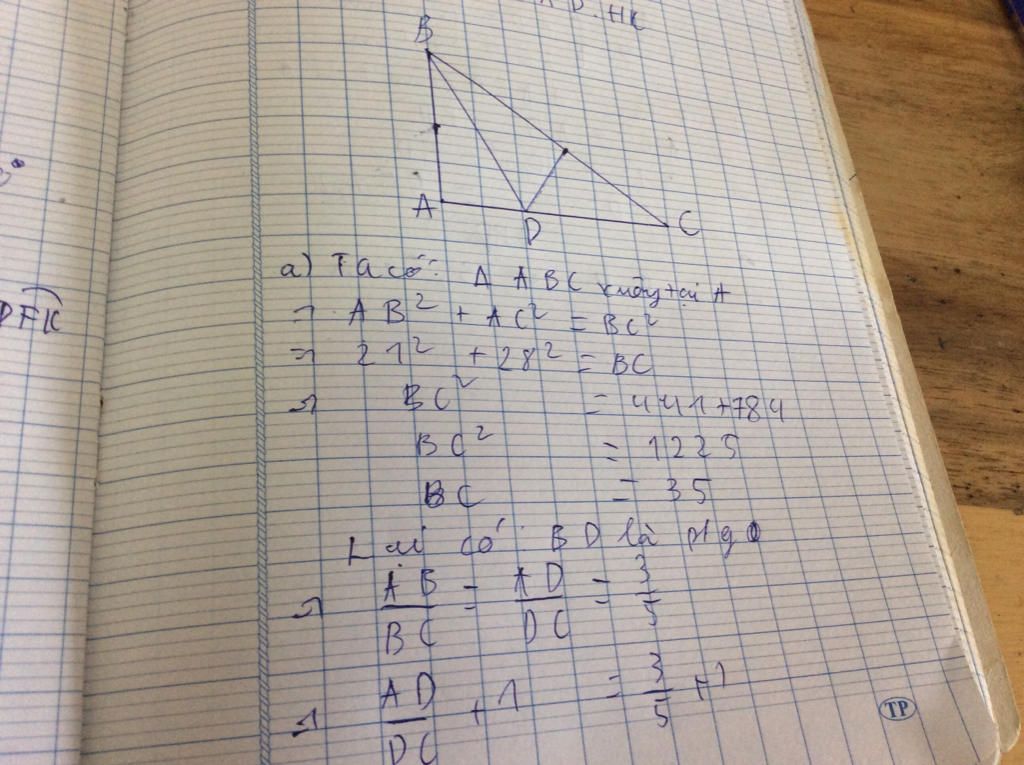 AD.HK
B
A
D
C
DFK
a) Ta có: Δ ABC vuông tại A
⇒ AB² + AC² = BC²
⇒ 21² + 28² = BC
⇒ BC² = 441+784
BC² = 1225
BC = 35
Lại có: BD là p/g
⇒ AB/BC = AD/DC = 3/5
⇒ AD/DC + 1 = 3/5 + 1
TP